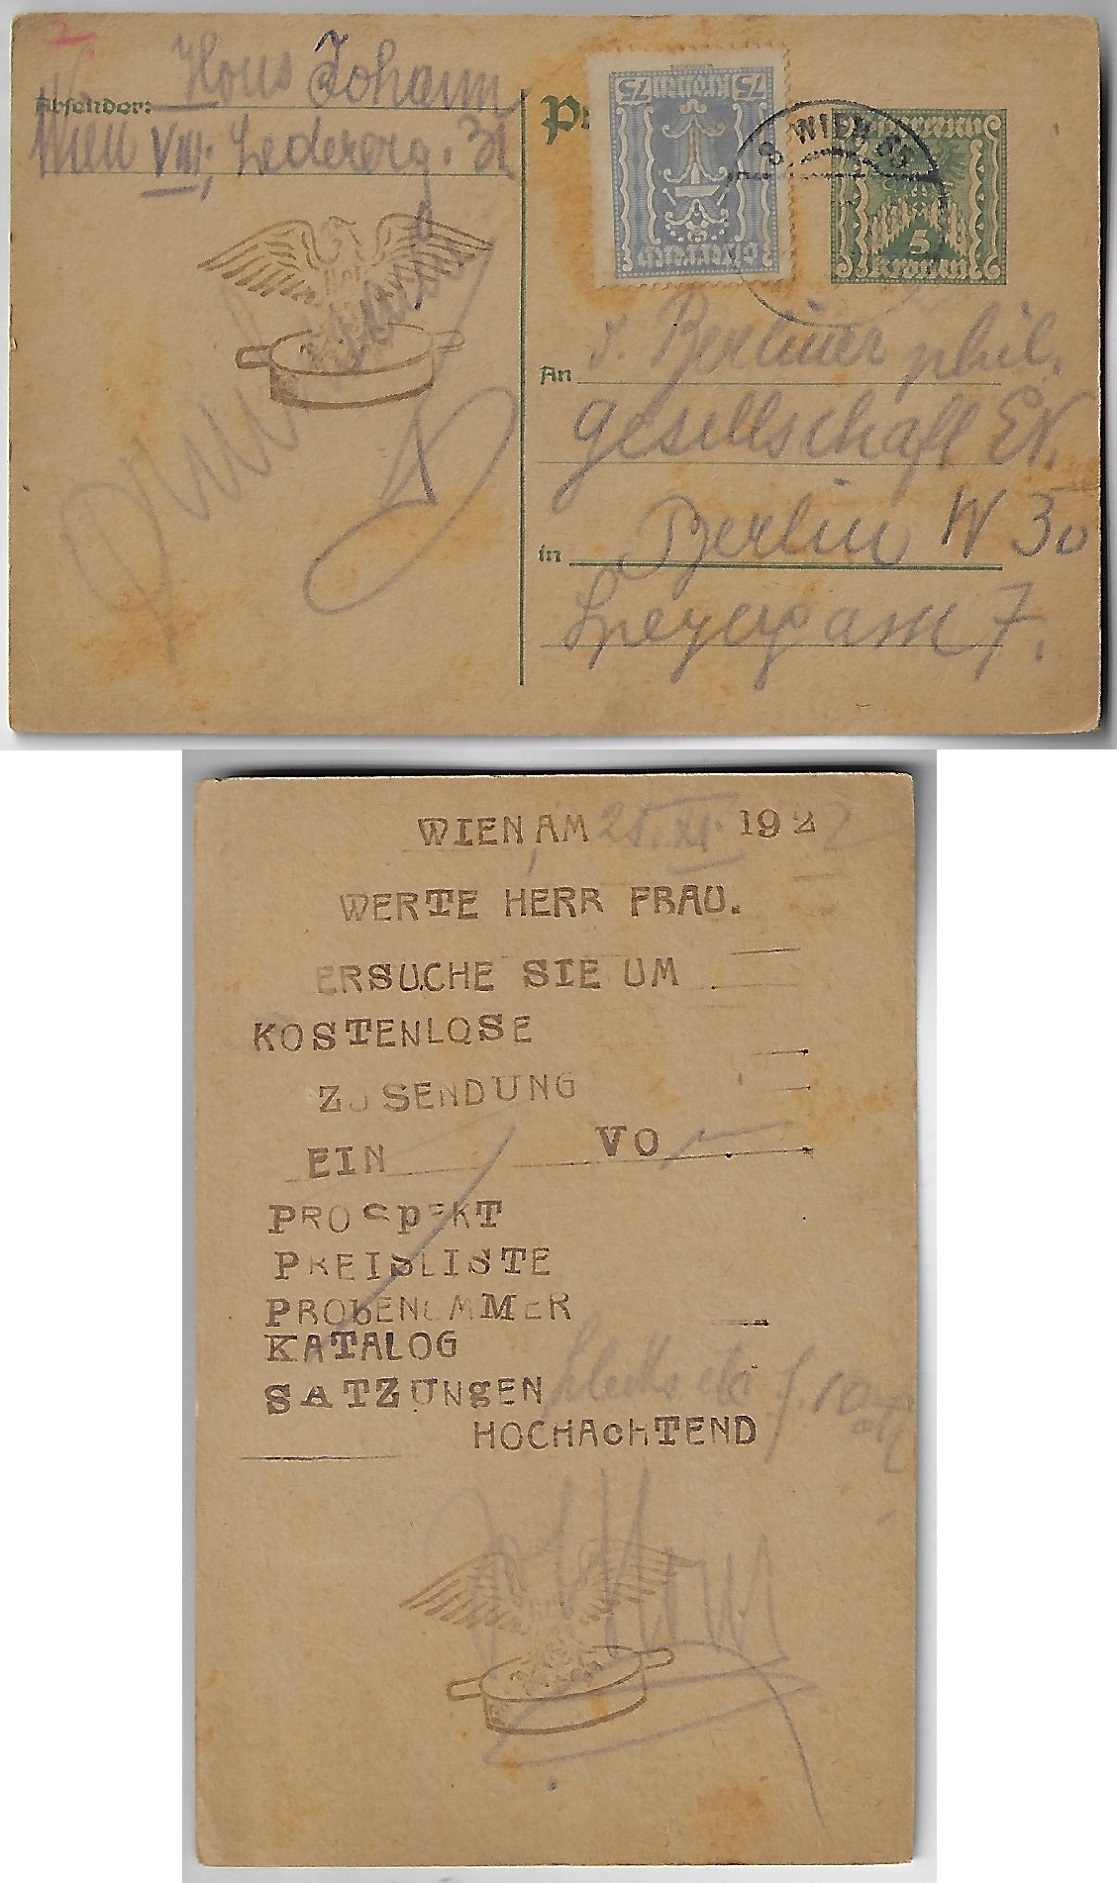 Absender: Hous Johann
Wien VIII, Ledererg. 31
75 75
Kronen
Österreich
8 WIEN 65
Österreich
5
Kronen
An d. Berliner phil.
gesellschaft EV.
in Berlin W 30
Speyergasse 7.
WIEN, AM 25. XI. 1922
WERTE HERR FRAU.
ERSUCHE SIE UM
KOSTENLOSE
ZUSENDUNG
EIN VO
PROSPEKT
PREISLISTE
PROBENUMMER
KATALOG
SATZUNGEN
HOCHACHTEND